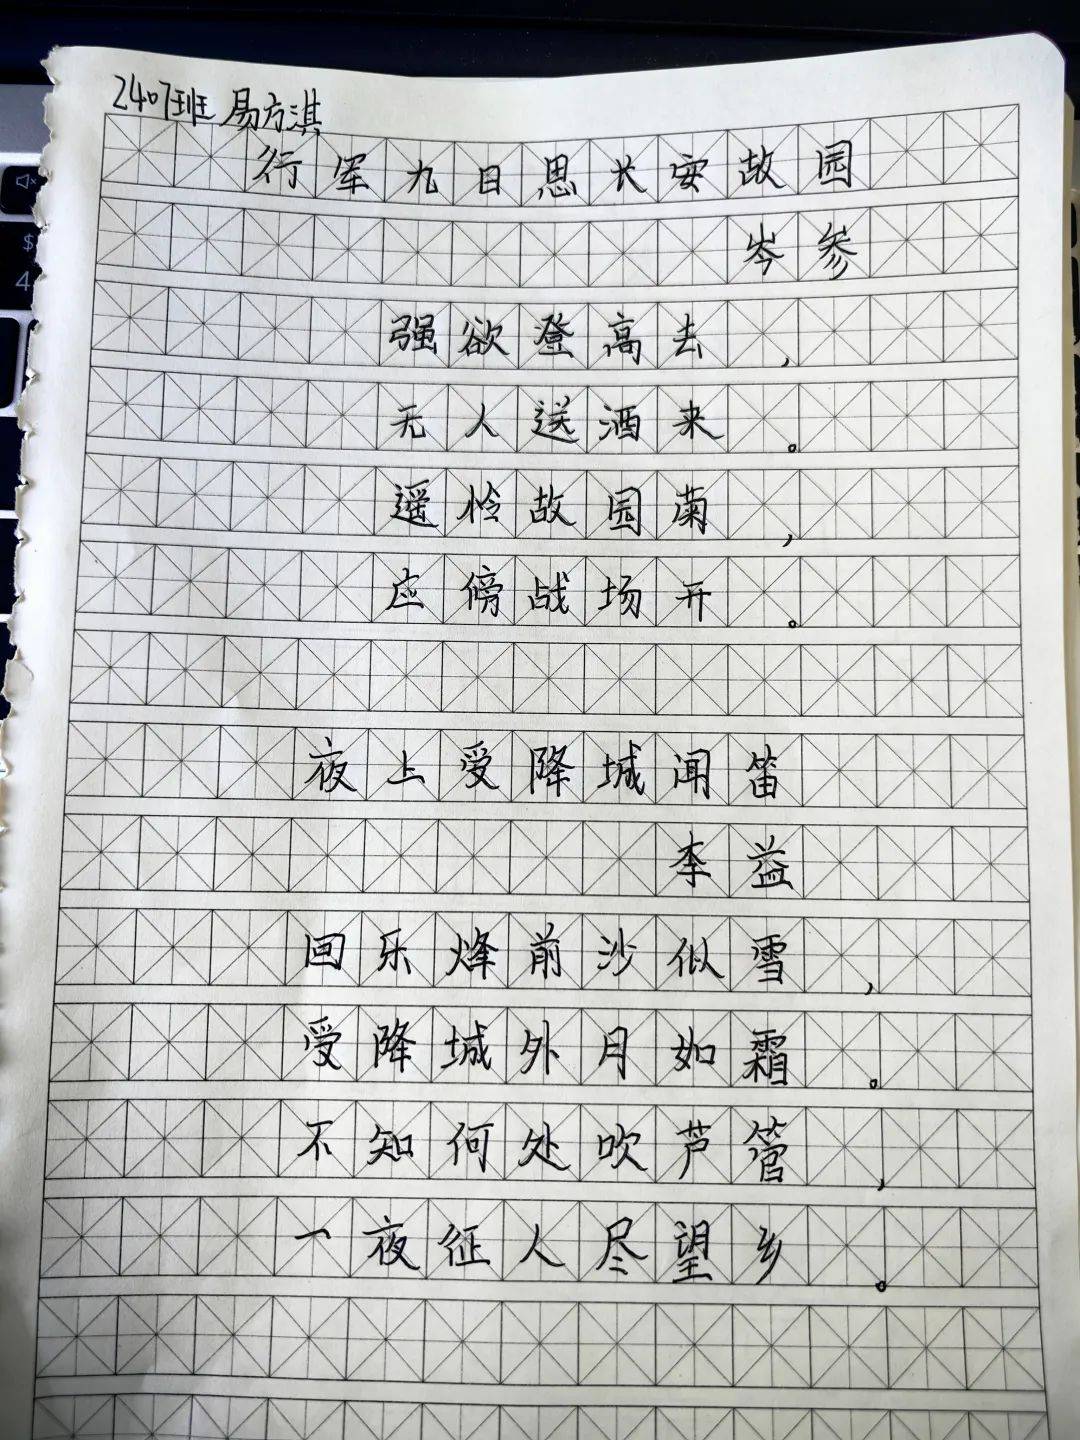 2407班 易方淇
行军九日思长安故园
岑参
强欲登高去，
无人送酒来。
遥怜故园菊，
应傍战场开。
夜上受降城闻笛
李益
回乐烽前沙似雪，
受降城外月如霜。
不知何处吹芦管，
一夜征人尽望乡。